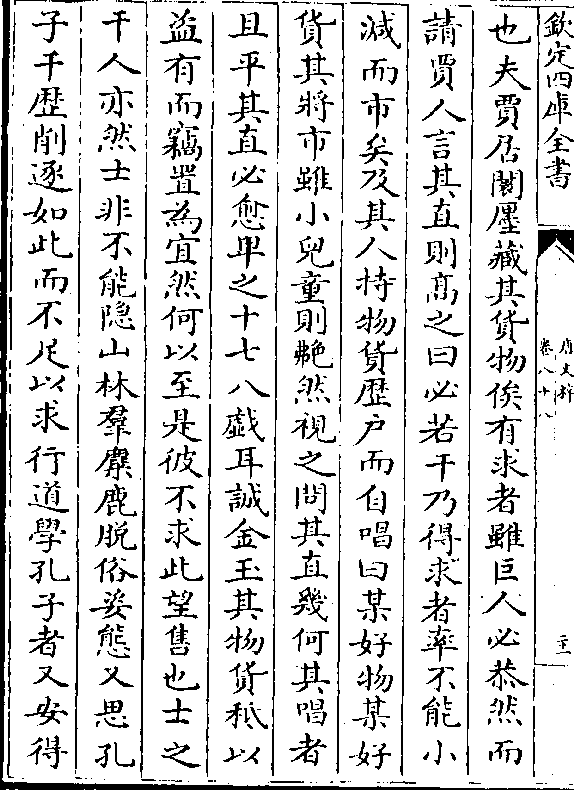 欽定四庫全書
唐文粹
卷八十八
二十一
也夫賈居闤㕓藏其貨物俟有求者雖巨人必恭然而
請賈人言其直則髙之曰必若干乃得求者率不能小
減而市矣及其人持物貨歴户而自唱曰某好物某好
貨其將市雖小兒童則艴然視之問其直幾何其唱者
且平其直必愈卑之十七八戯耳誠金玉其物貨秪以
益有而竊置為宜然何以至是彼不求此望售也士之
干人亦然士非不能隐山林羣麋鹿脱俗姿態又思孔
子干歴削逐如此而不足以求行道學孔子者又安得